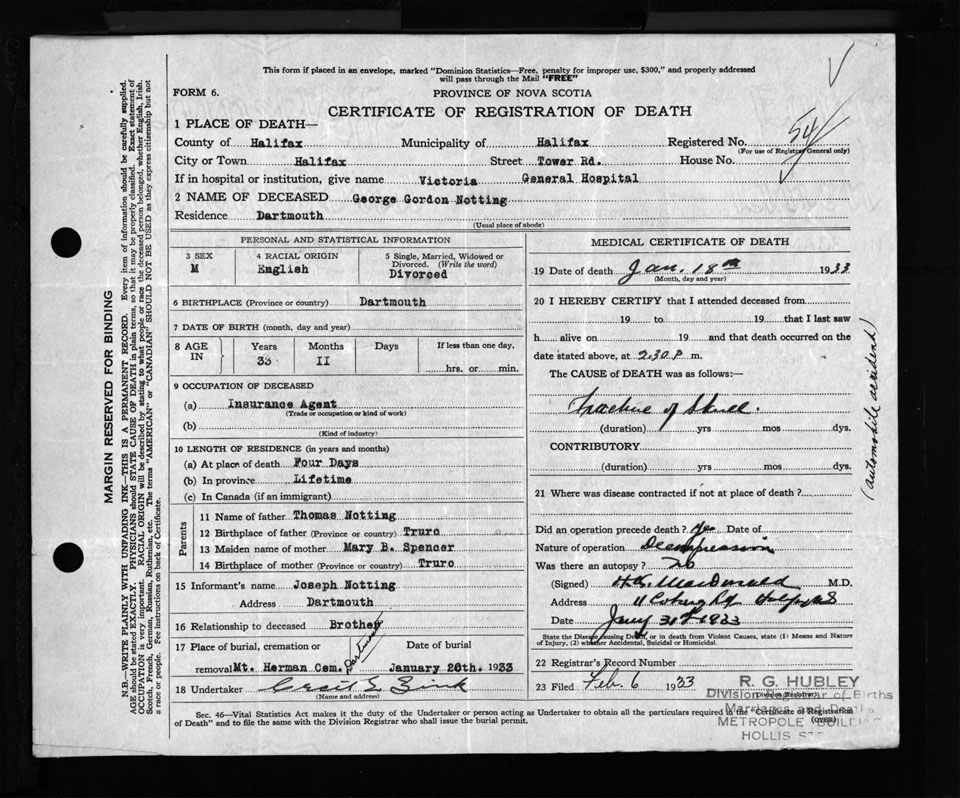 This form if placed in an envelope, marked "Dominion Statistics—Free, penalty for improper use, $300," and properly addressed
will pass through the Mail "FREE"
FORM 6.
PROVINCE OF NOVA SCOTIA
CERTIFICATE OF REGISTRATION OF DEATH
1 PLACE OF DEATH—
County of Halifax Municipality of Halifax Registered No. 54
(For use of Registrar General only)
City or Town Halifax Street Tower Rd. House No.
If in hospital or institution, give name Victoria General Hospital
2 NAME OF DECEASED George Gordon Notting
Residence Dartmouth
(Usual place of abode)
PERSONAL AND STATISTICAL INFORMATION
3 SEX
M
4 RACIAL ORIGIN
English
5 Single, Married, Widowed or
Divorced. (Write the word)
Divorced
6 BIRTHPLACE (Province or country) Dartmouth
7 DATE OF BIRTH (month, day and year)
8 AGE IN
Years Months Days If less than one day,
33 11 hrs. or min.
9 OCCUPATION OF DECEASED
(a) Insurance Agent
(Trade or occupation or kind of work)
(b)
(Kind of industry)
10 LENGTH OF RESIDENCE (in years and months)
(a) At place of death Four Days
(b) In province Lifetime
(c) In Canada (if an immigrant)
Parents
11 Name of father Thomas Notting
12 Birthplace of father (Province or country) Truro
13 Maiden name of mother Mary B. Spencer
14 Birthplace of mother (Province or country) Truro
15 Informant's name Joseph Notting
Address Dartmouth
16 Relationship to deceased Brother
17 Place of burial, cremation or Date of burial
removal Mt. Herman Cem. Dartmouth January 20th. 1933
18 Undertaker Cecil E. Zink
(Name and address)
MEDICAL CERTIFICATE OF DEATH
19 Date of death Jan. 18th 1933
(Month, day and year)
20 I HEREBY CERTIFY that I attended deceased from
19 to 19 that I last saw
h alive on 19 and that death occurred on the
date stated above, at 2.30 P. m.
The CAUSE of DEATH was as follows:—
Fracture of Skull.
(duration) yrs mos dys.
CONTRIBUTORY
(duration) yrs mos dys.
(automobile accident)
21 Where was disease contracted if not at place of death?
Did an operation precede death? Yes Date of
Nature of operation Decompression
Was there an autopsy? no
(Signed) H.K. MacDonald M.D.
Address 11 Coburg Rd Halifax NS
Date Jany 31st 1933
State the Disease causing Death, or in death from Violent Causes, state (1) Means and Nature
of Injury, (2) whether Accidental, Suicidal or Homicidal.
22 Registrar's Record Number
23 Filed Feb. 6 1933
R. G. HUBLEY
Division Registrar of Births
Marriages and Deaths
METROPOLE BUILDING
HOLLIS
Sec. 46—Vital Statistics Act makes it the duty of the Undertaker or person acting as Undertaker to obtain all the particulars required in the "Certificate of Registration
of Death" and to file the same with the Division Registrar who shall issue the burial permit.
MARGIN RESERVED FOR BINDING
N.B.—WRITE PLAINLY WITH UNFADING INK—THIS IS A PERMANENT RECORD. Every item of information should be carefully supplied.
AGE should be stated EXACTLY. PHYSICIANS should STATE CAUSE OF DEATH in plain terms, so that it may be properly classified. Exact statement of
OCCUPATION is very important. RACIAL ORIGIN will be described by stating to what people or race the deceased person belonged, whether English, Irish,
Scotch, French, German, Russian, Ruthenian, etc. The terms "AMERICAN" or "CANADIAN" SHOULD NOT BE USED as they express citizenship but not
a race or people. See instructions on back of Certificate.